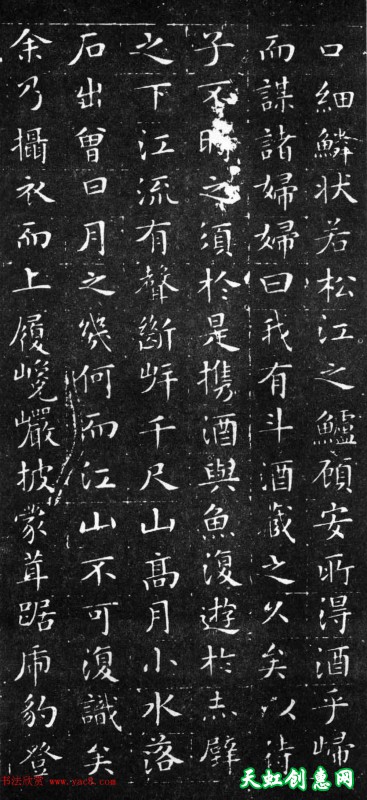 口細鱗状若松江之鱸顧安所得酒乎歸
而謀諸婦婦曰我有斗酒藏之久矣以待
子不時之須於是携酒與魚復遊於赤壁
之下江流有聲斷岸千尺山高月小水落
石出曾日月之幾何而江山不可復識矣
余乃攝衣而上履巉巖披蒙茸踞虎豹登
书法欣赏 www.yac8.com
天虹创惠网